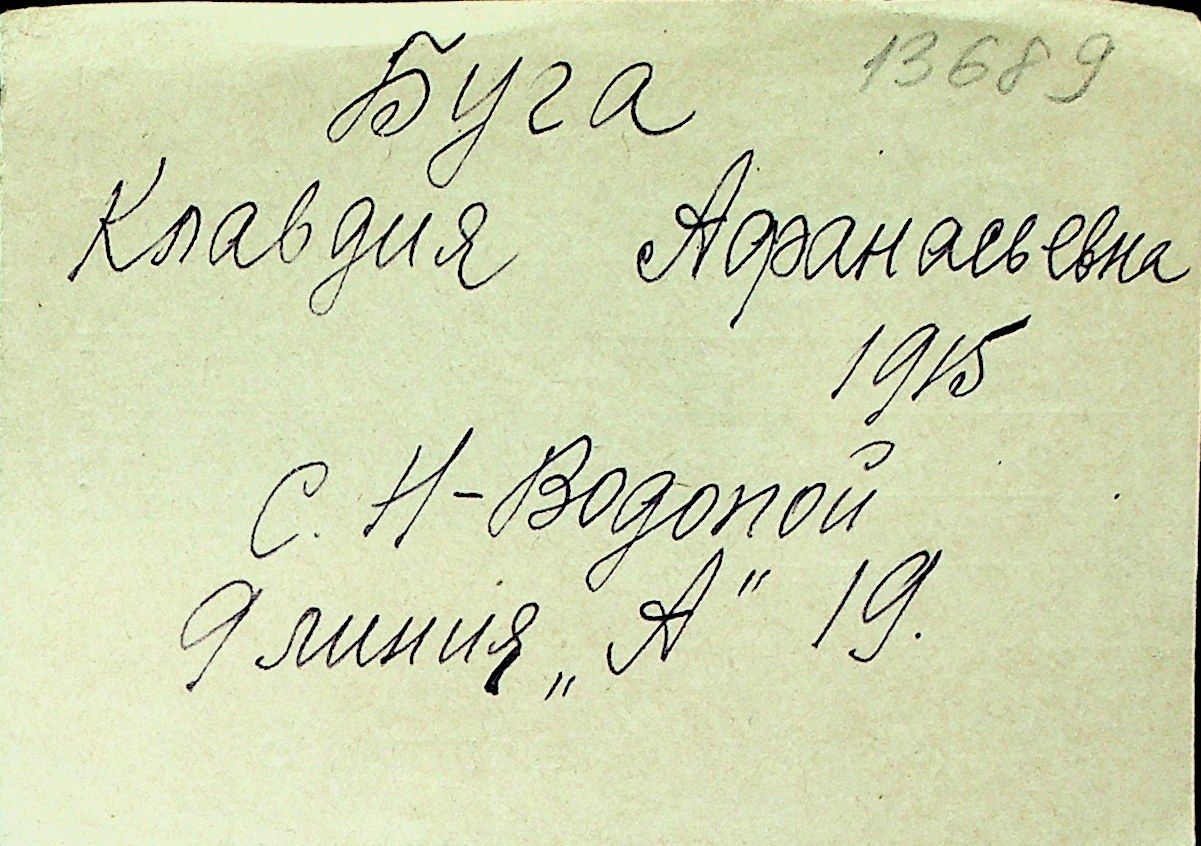 Буга 13689
Клавдия Афанасьевна
1915
С. Н-Водопой
9 линия „А" 19.